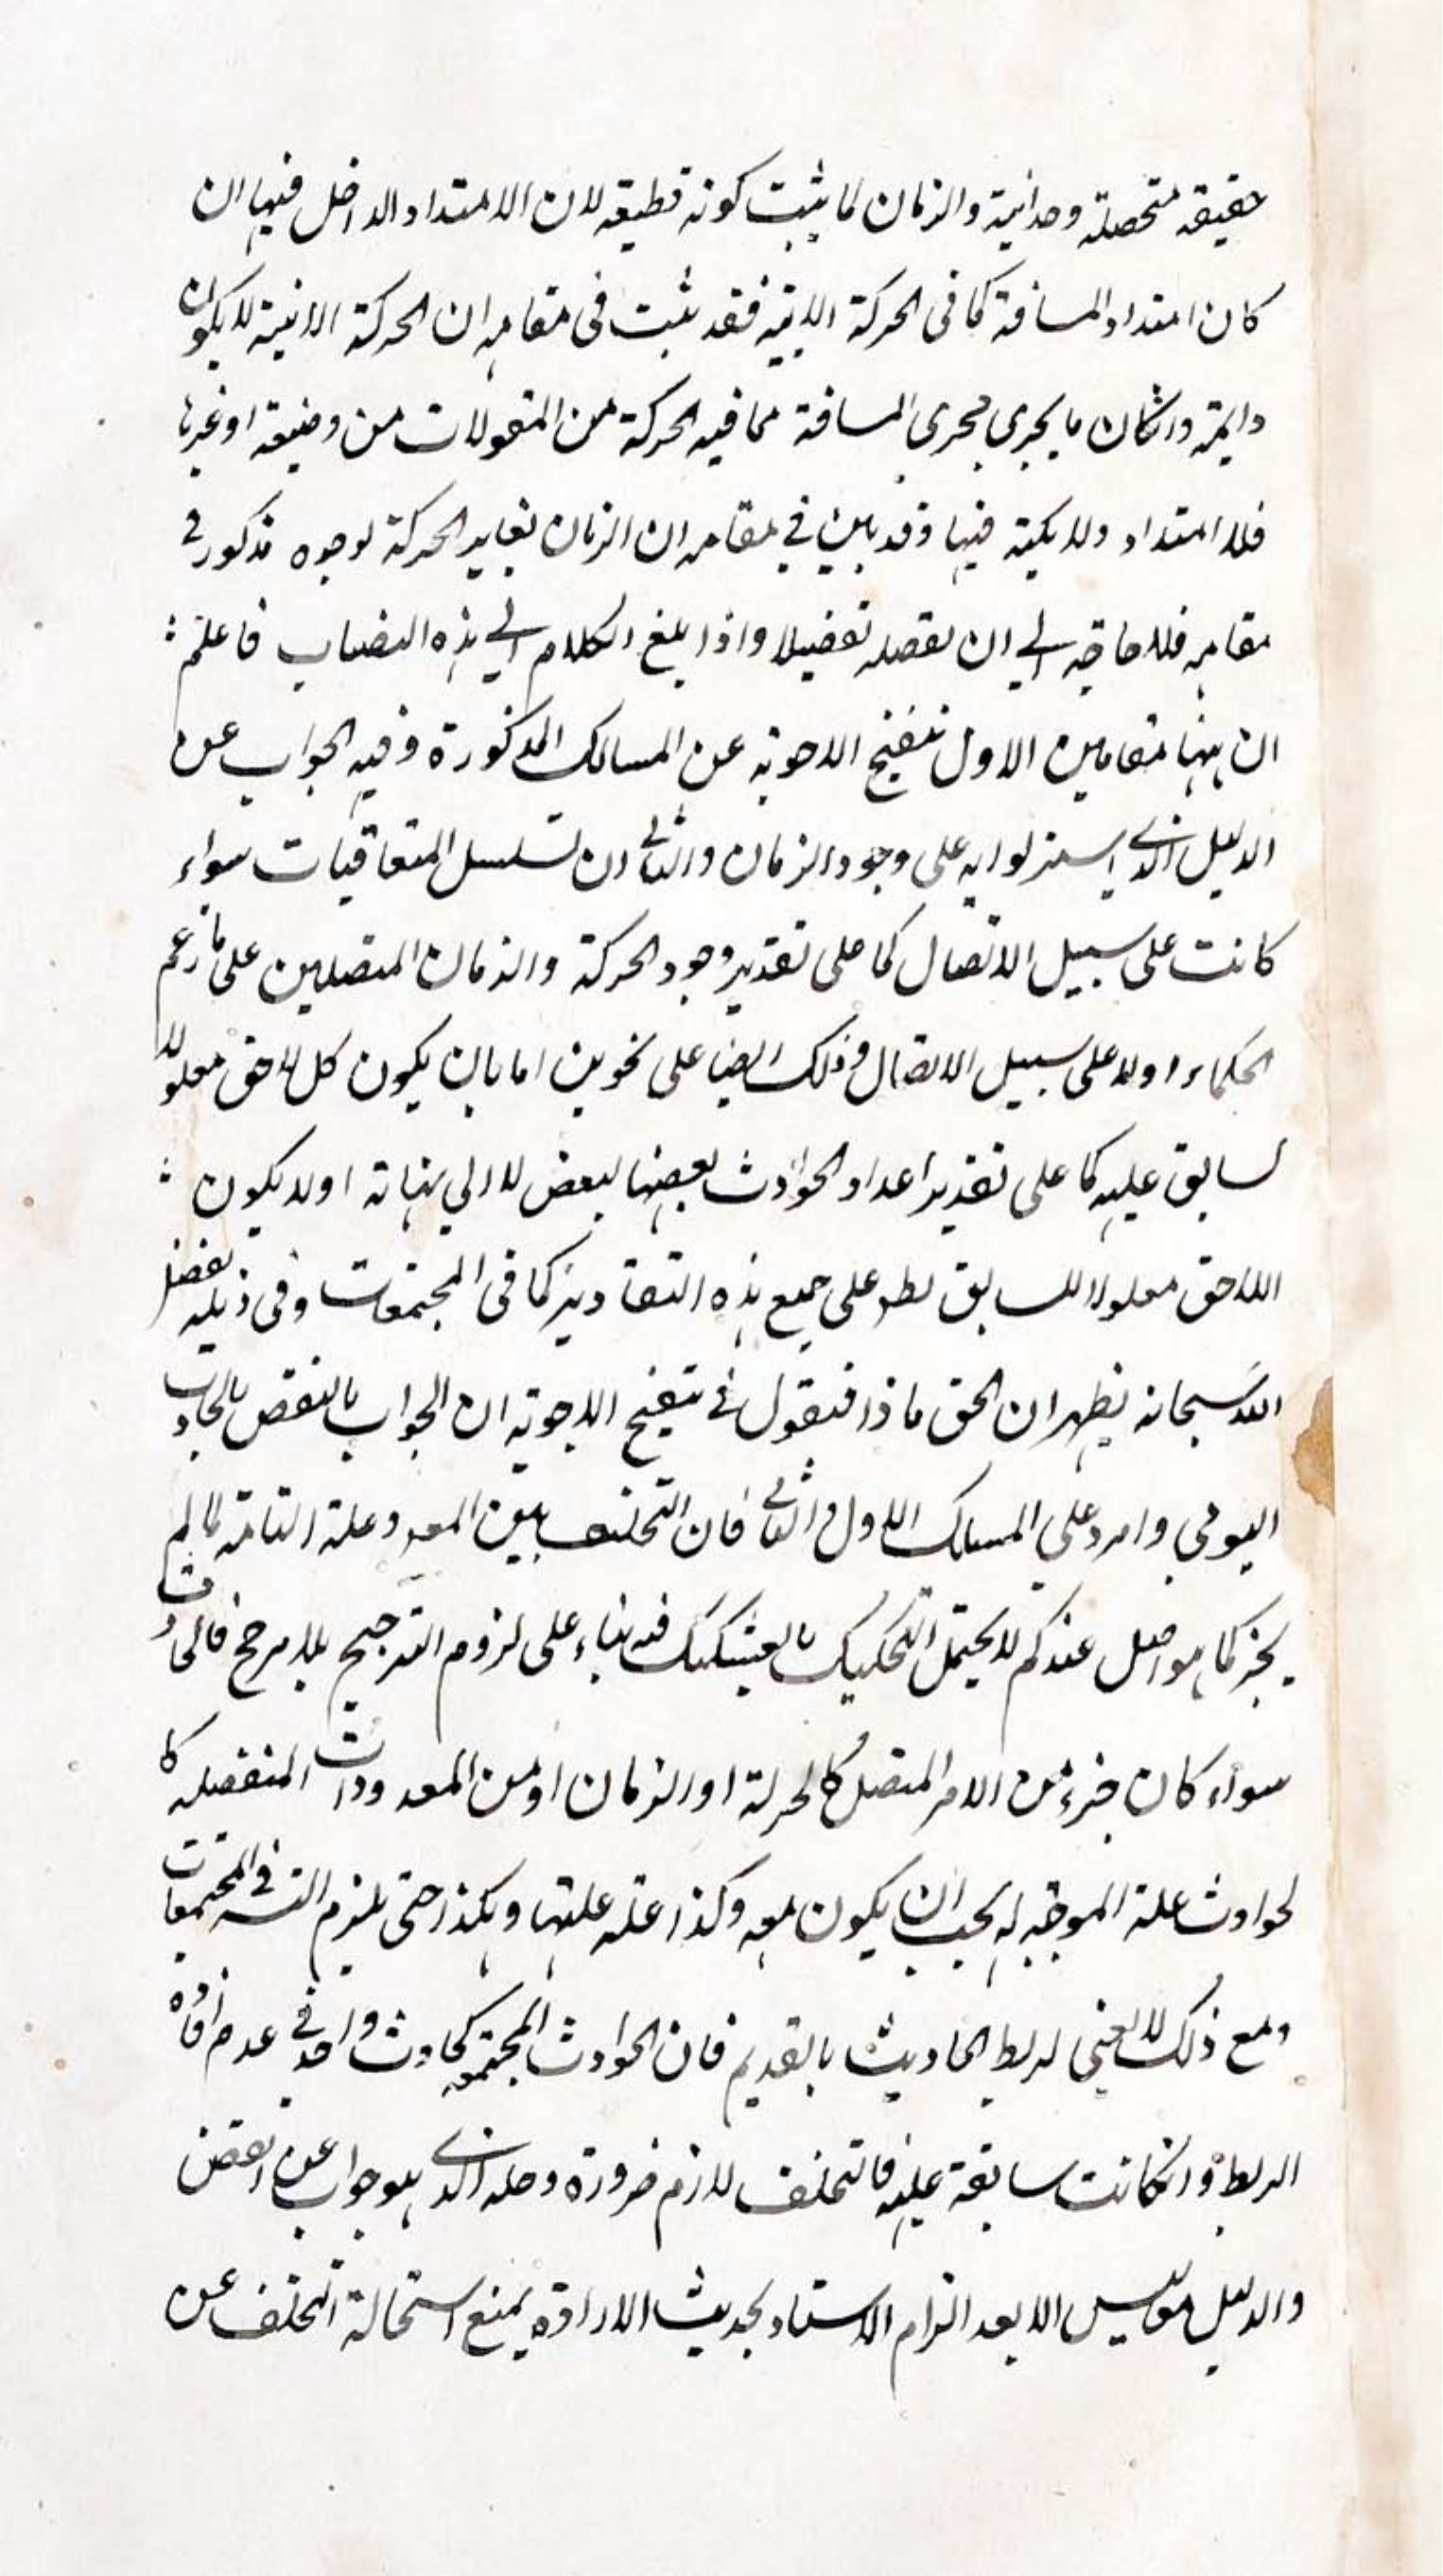 حقيقة متحصلة وحدانية والزمان لما يثبت كونه قطيعه لان الامتداد الداخل فيها ان
كان امتداد المسافة كما فى الحركة الاينية فقد ثبت فى مقامه ان الحركة الاينية لا يكون
دايمة وانكان ما يجري مجرى المسافة مما فيه الحركة من المقولات من وضيعة او غيرها
فلا امتداد ولا كمية فيها وقد بين في مقامه ان الزمان تغاير الحركة لوجوه مذكور في
مقامه فلا حاجة الي ان نفصله تفضيلا واذا بلغ الكلام الي هذه النصاب فاعلم :
ان ههنا مقامين الاول تنقيح الاجوبة عن المسالك المذكورة وفيه الجواب عن
الدليل الذي استدلوا به على وجود الزمان والثاني ان تسلسل المتعاقبات سواء
كانت على سبيل الاتصال كما على تقدير وجود الحركة والزمان المتصلين على ما زعم
الحكماء اولا على سبيل الاتصال وذلك ايضا على نحوين اما بان يكون كل لاحق معلولا
لسابق عليه كما على تقدير اعداد الحوادث بعضها لبعض لا الي نهاية اولا يكون :
اللاحق معلولا للسابق بطل على جميع هذه التقادير كما فى المجتمعات وفى ذيله بفضل
الله سبحانه يظهر ان الحق ماذا فنقول في تنقيح الاجوبة ان الجواب بالنقض بالحادث
اليومي وارد علي المسالك الاول والثاني فان التخلف بين المعلول وعلة التامة لما لم
يجز كما هو اصل عندكم لا يحتمل التحكيك بالتشكيك فيه بناء على لزوم الترجيح بلا مرجح فالحادث
سواء كان جزء من الامر المتصل كالحركة او الزمان او من المعدودات المنفصلة كا
لحوادث علة الموجبة له يجب ان يكون معه وكذا علة علتها وهكذا حتى يلزم التسه في المجتمعات
ومع ذلك لا يغنى لربط الحاديث بالقديم فان الحوادث المجتمعة كحادث واحد في عدم افادة
الربط وانكانت سابقة عليه فالتخلف لازم ضرورة وحله الذي هو جواب عن النقض
والدليل ليس الا بعد التزام الاستناد بحديث الارادة يمنع استحالة التخلف عن